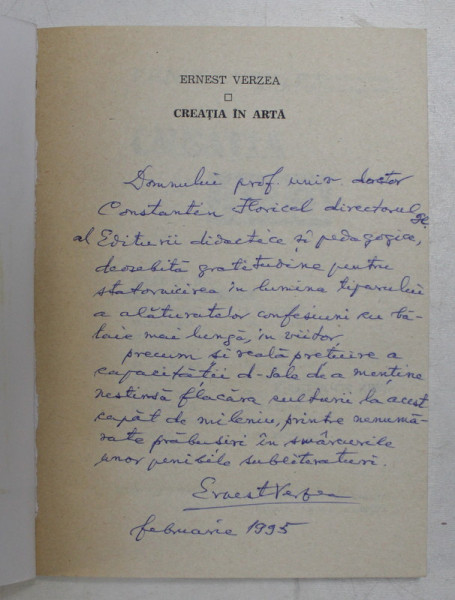 ERNEST VERZEA
CREAȚIA ÎN ARTĂ
Domnului prof. univ. doctor
Constantin Floricel directorul
al Editurii didactice și pedagogice,
deosebită gratitudine pentru
statornicirea în lumina tiparului
a alăturatelor confesiuni cu bă-
taie mai lungă, în viitor,
precum și reală prețuire a
capacității d-sale de a menține
nestinsă flacăra culturii la acest
capăt de mileniu, printre nenumă-
rate prăbușiri în smârcurile
unor penibile subliteraturi.
Ernest Verzea
februarie 1995